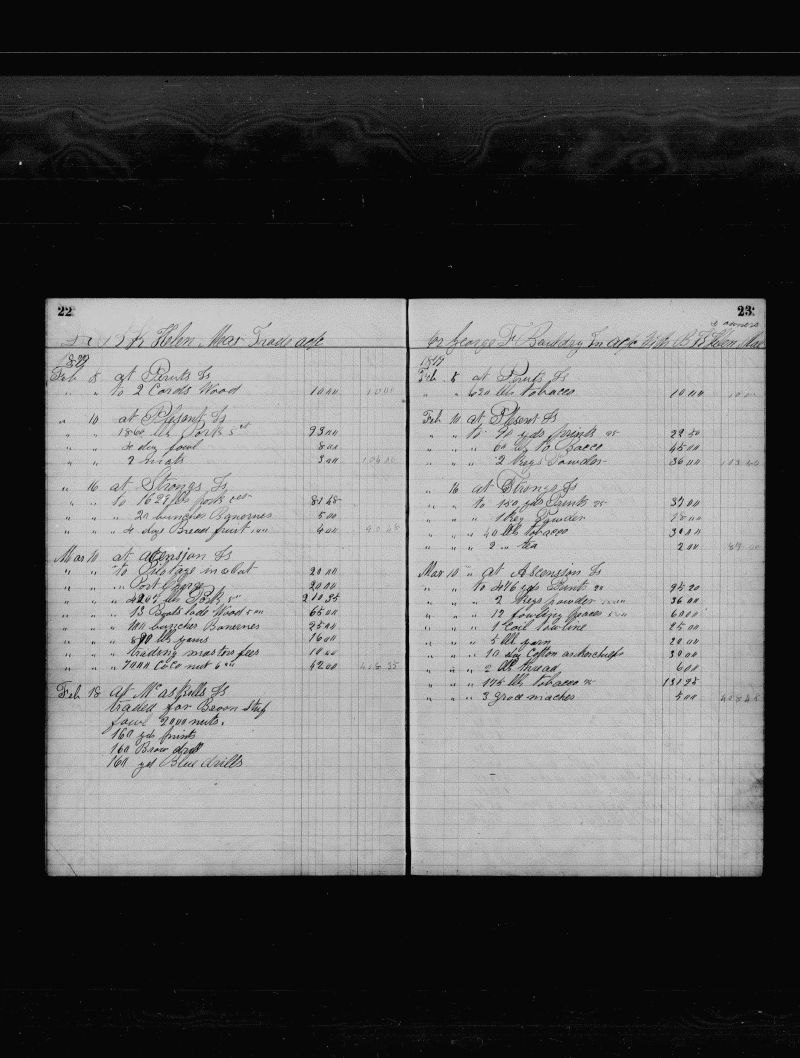 22
Dr Bk Helen Mar Trade a/c
1879
Feb 8 at Peruts Is
" " to 2 Cords Wood 10 00 10 00
" 10 at Plesent Is
" " 1860 lbs Pork 5 ct 93 00
" " 4 doz fowl 8 00
" " 2 mats 3 00 104 00
" 16 at Strongs Is
" " to 1629 lbs pork 81 45
" " " 20 bunches Banernes 5 00
" " " 4 doz Bread fruit 4 00 90 45
Mar 10 at Asension Is
" " to Pilotage in & out 20 00
" " " Port Charge 20 00
" " " lbs Pork 5 " 210 35
" " " 13 Boats lods Wood 5 00 65 00
" " " 100 bunches Banernes 25 00
" " " 800 lbs yams 16 00
" " " trading masters fees 10 00
" " " 7000 Coco nut 6 00 42 00 408 35
Feb 18 at McAskills Is
traded for Bread stuf
fowl 2000 nuts.
160 yds prints
160 Brow drill
160 yd Blue drills
23
& owners
Cr George F Bauldry In a/c with Bk Helen Mar
1879
Feb 8 at Peruts Is
" " " 620 lbs tobacco 10 00 10 00
Feb 10 at Plesent Is
" " to 90 yds prints 25 22 50
" " " 60 lbs to Bacco 45 00
" " " 2 Kegs Powder 36 00 103 50
" 16 at Strongs Is
" " to 150 yds Prints 25 37 00
" " " 1 Keg Powder 18 00
" " " 40 lbs tobacco 30 00
" " " 2 " tea 2 00 87 00
Mar 10 " at Ascension Is
" " to 476 yds Prints 20 95 20
" " " 2 Kegs powder 36 00
" " " 12 fowling peaces 5 00 60 00
" " " 1 Coil towline 25 00
" " " 5 lbs yarn 20 00
" " " 10 doz Cotton ankerchifs 30 00
" " " 2 lbs thread 6 00
" " " 175 lbs tobacco 75 131 25
" " " 3 Groce maches 5 00 408 45